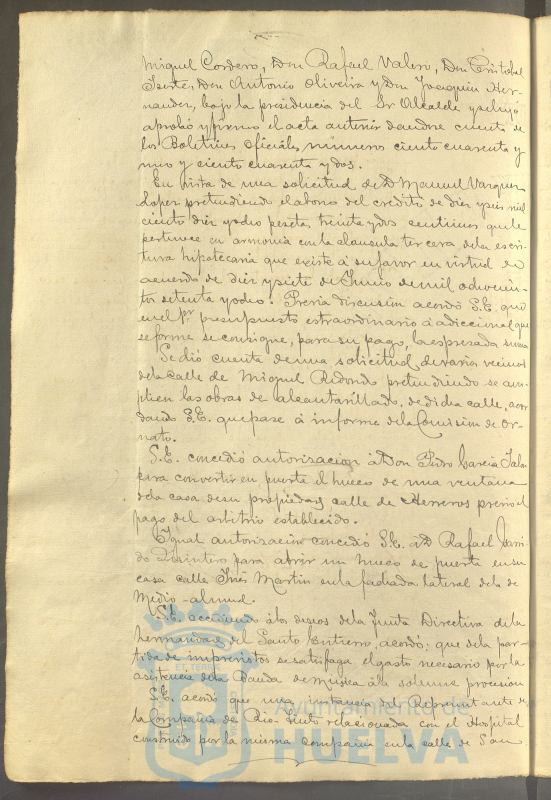 Miguel Cordero, Don Rafael Valero, Don Cristobal
Don Antonio Oliveira y Don Joaquin Her-
nandez, bajo la presidencia del Sr Alcalde y se leyó
aprobó y firmó el acta anterior dandose cuenta de
los Boletines Oficiales números ciento cuarenta y
uno y ciento cuarenta y dos.
En vista de una solicitud de D Manuel Vazquez
Lopez pretendiendo el abono del credito de diez y seis mil
ciento diez y ocho peseta, treinta y dos centimos que le
pertenece en armonia con la clausula tercera de la escri-
tura hipotecaria que existe á su favor en virtud de
acuerdo de diez y siete de Junio de mil ochocien-
tos setenta y ocho: Previa discusion acordó S.E. que
en el pr presupuesto extraordinario ó adiccional que
se forme se consigne, para su pago, la espresada suma
Se dió cuenta de una solicitud de varios vecinos
de la calle de Miguel Redondo pretendiendo se am-
plien las obras de alcantarillado, de dicha calle, acor
dando S.E. que pase á informe de la Comision de Or-
nato.
S.E. concedió autorizacion á Don Pedro Garcia Tala-
bera convertir en puerta el hueco de una ventana
de la casa de su propiedad, calle de Herreros previo el
pago del arbitrio establecido.
Igual autorizacion concedió S.E. á D Rafael Garri-
do Quintero para abrir un hueco de puerta en su
casa calle Inés Martin en la fachada lateral de la de
Medio-almud.
S.E. accediendo á los deseos de la Junta Directiva de la
hermandad del Santo Entierro, acordó: que de la par-
tida de imprevistos se satisfaga el gasto necesario por la
asistencia de la Banda de musica á la solemne procesion
S.E. acordó que una instancia del Representante de
la Compañia de Rio-Tinto relacionada con el Hospital
construido por la misma compañia en la calle de San
Ayuntamiento de
HUELVA